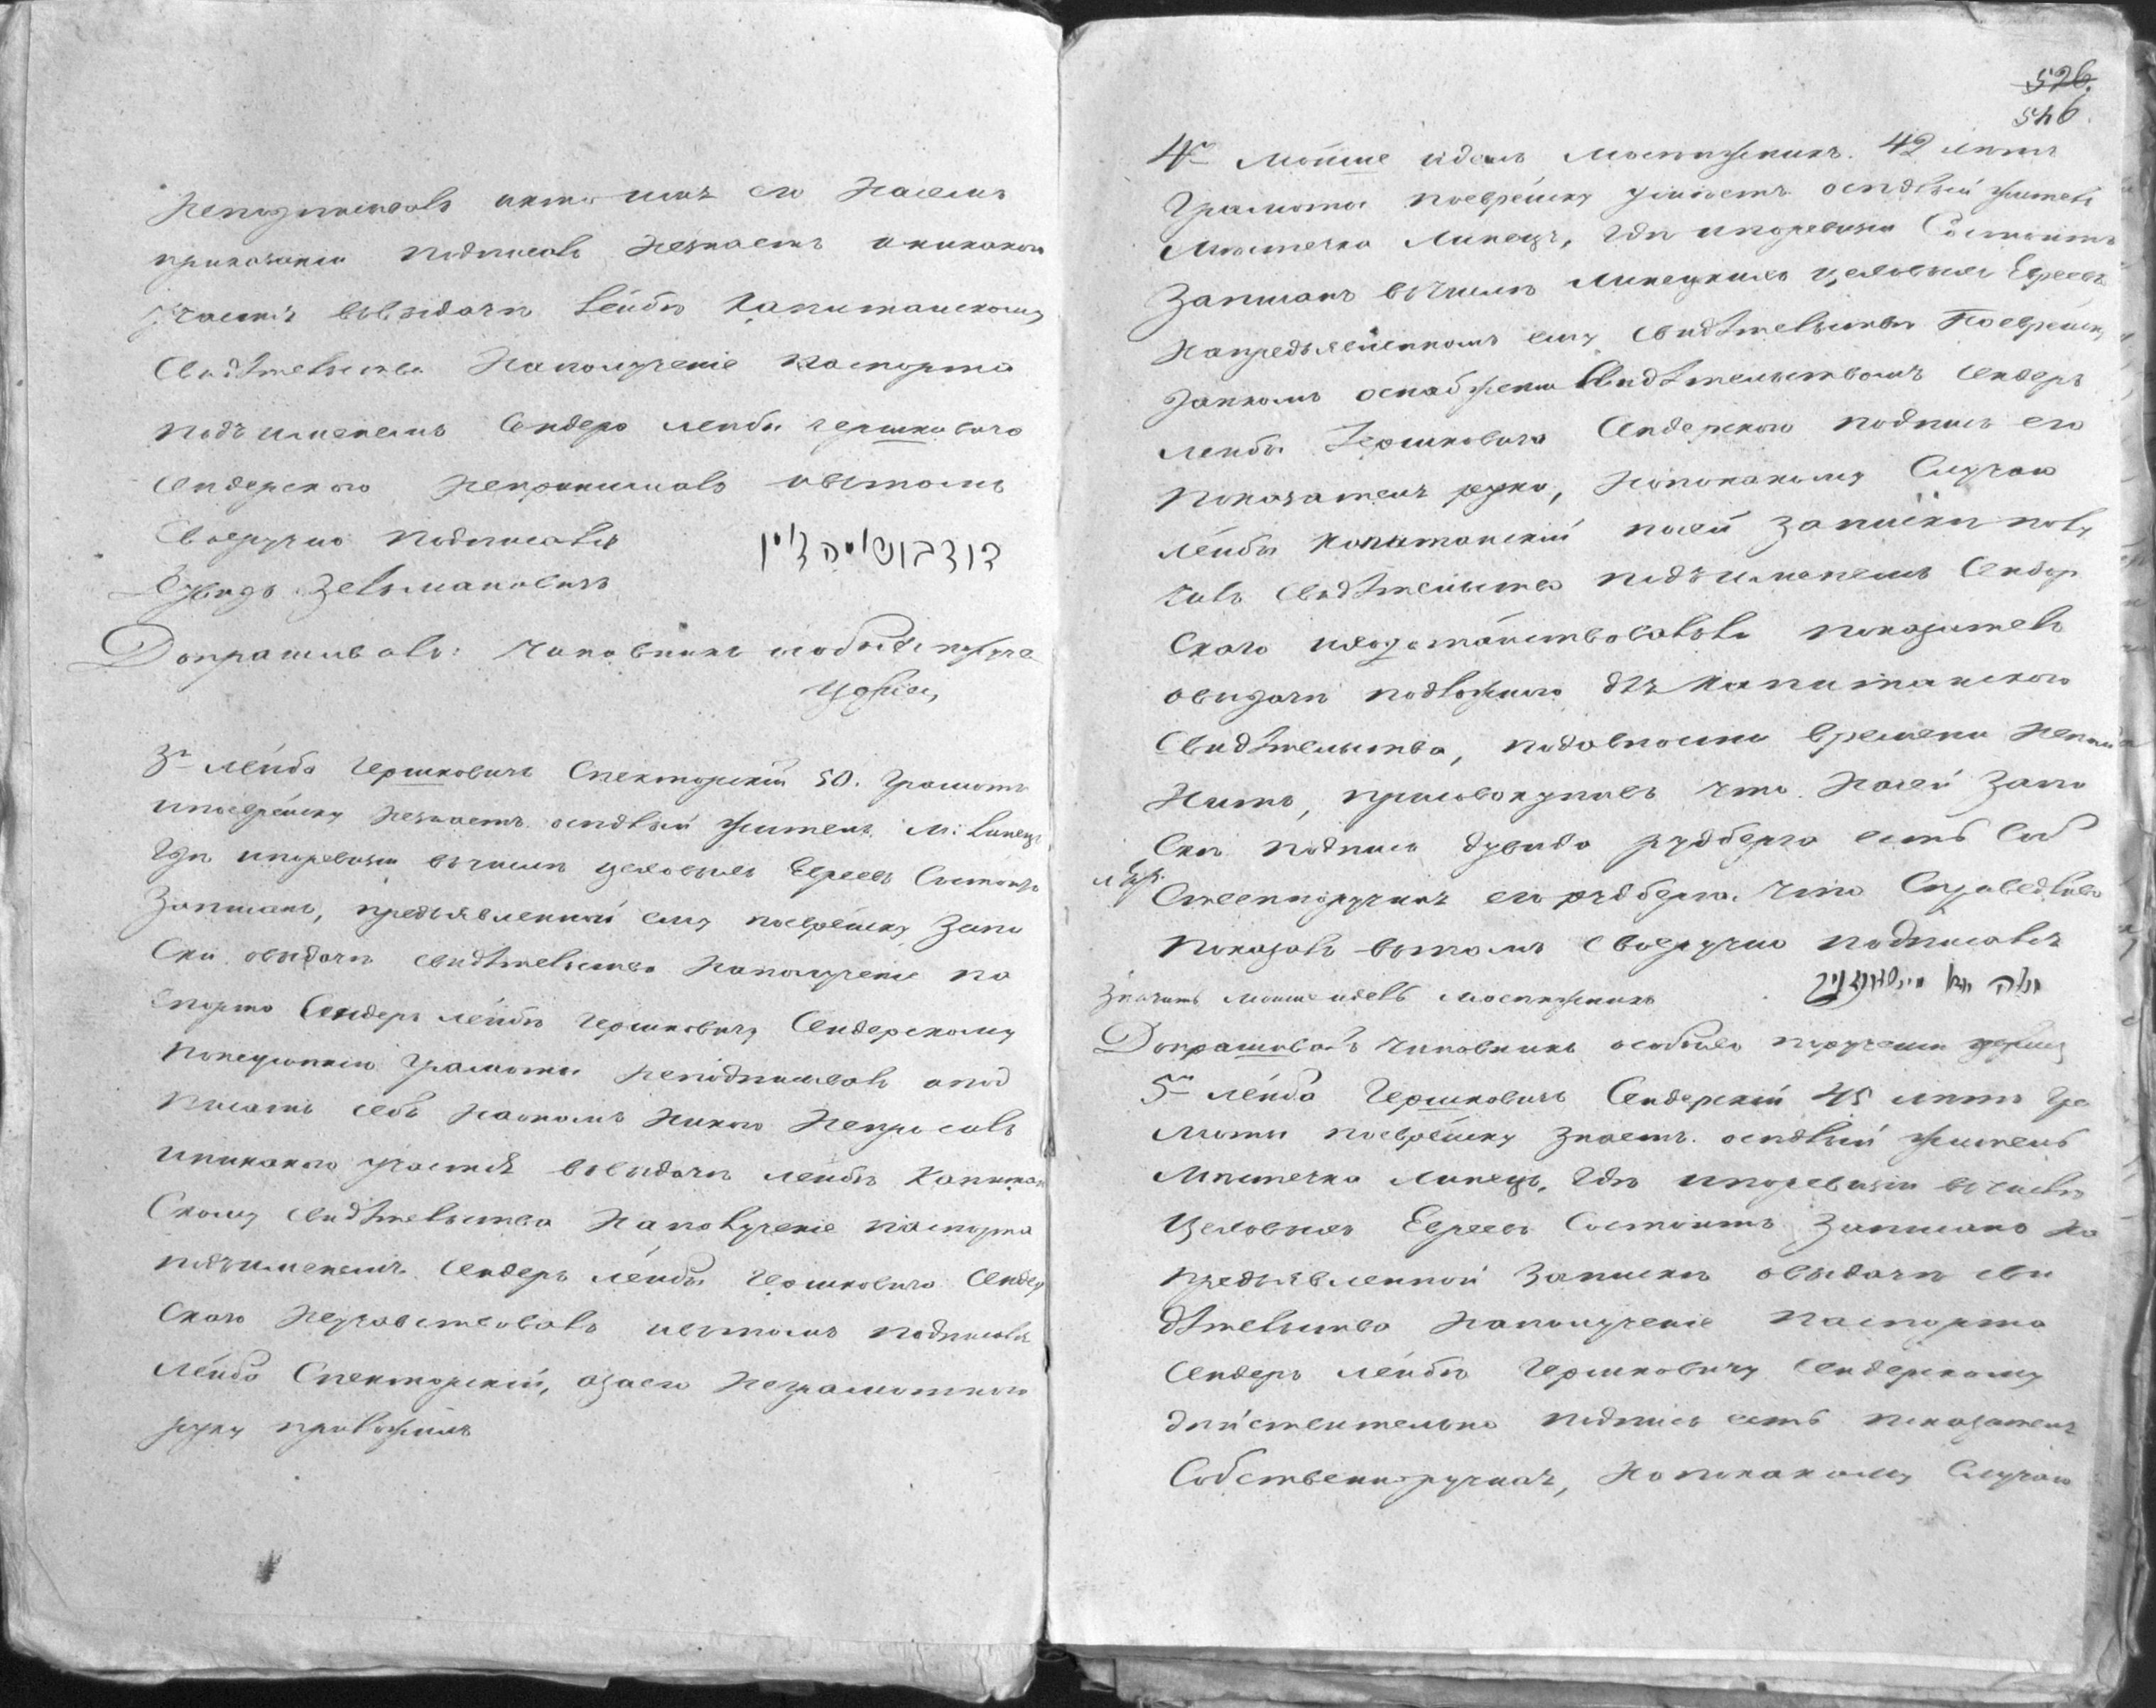 Неподписывалъ икто имя его Насемъ
приказании подписалъ Незнаетъ иникакого
участія ввыдачи Лейбѣ Капитанскому
Свидѣтельства Наполученіе паспорта
подъ именемъ Сендера Лейбы Гершковича
Сендерского Непринималъ ивтомъ
Своеручно подписался
דוד
Дувидъ Зельмановичъ
Допрашивалъ: Чиновникъ особыхъ порученій
3й Лейба Гершковичъ Спекторскій 50. Грамоты
ипоеврейску Незнаетъ осѣдлый житель М: Липецъ
Гдѣ иморевизіи вчислѣ цеховыхъ Евреевъ Состоитъ
Записанъ, предъявленной ему поеврейску Запи
Ски овыдачи свидѣтельства Наполученіе па
спорта Сендеръ Лейбѣ Гершковичу Сендерскому
Понеумѣнію Грамоты Неподписывалъ апод
писать себя Наономъ Никого Непросилъ
иникакого участія ввыдачи Лейбѣ Капитан
Скому свидѣтельства Наполученіе паспорта
подъименемъ Сендеръ Лейбы Гершковича Сендер
Ского Неучавствовалъ ивтомъ подписался
Лейба Спекторскій, азаего Неграмотного
руку приложилъ
526.
546.
4й Мойше Идель Мостижникъ. 42 лѣтъ
Грамоты поеврейску умѣетъ осѣдлый житель
Мѣстечка Липецъ, Гдѣ ипоревизіи Состоитъ
Записанъ вчислѣ Липецкихъ Цеховыхъ Евреевъ
Напредъявленномъ ему свидѣтельствѣ Поеврейску
данномъ оснабженіи Свидѣтельствомъ Сендеръ
Лейбы Гершковича Сендерского подпись его
Показателя рука, Нопокакому Случаю
Лейба Капитанскій посей запискѣ полу
чилъ свидѣтельство подъименемъ Сендер
Ского иходотайствовалъли показатель
овыдачи подложного для Капитанского
Свидѣтельства, подавности времени Непом
Нитъ, присовокупивъ что Насей Запи
Ски подпись Дувида Рудберга есть Соб
Ственноручная его Рудберга. Что Справедливо
Показалъ втомъ своеручно подписался
Значитъ Мошеидель Мостижникъ
Допрашивалъ Чиновникъ особыхъ порученій
5й Лейба Гершковичъ Сендерскій 45 лѣтъ Гра
моты поеврейску Знаетъ. осѣдлый житель
Мѣстечка Липецъ, Гдѣ ипоревизіи вчислѣ
Цеховыхъ Евреевъ Состоитъ Записанъ На
предъявленной Запискѣ овыдачи сви
дѣтельства Наполученіе Паспорта
Сендеръ Лейбѣ Гершковичу Сендерскому
дѣйствительно подпись есть показателя
Собственноручная, Нопокакому Случаю